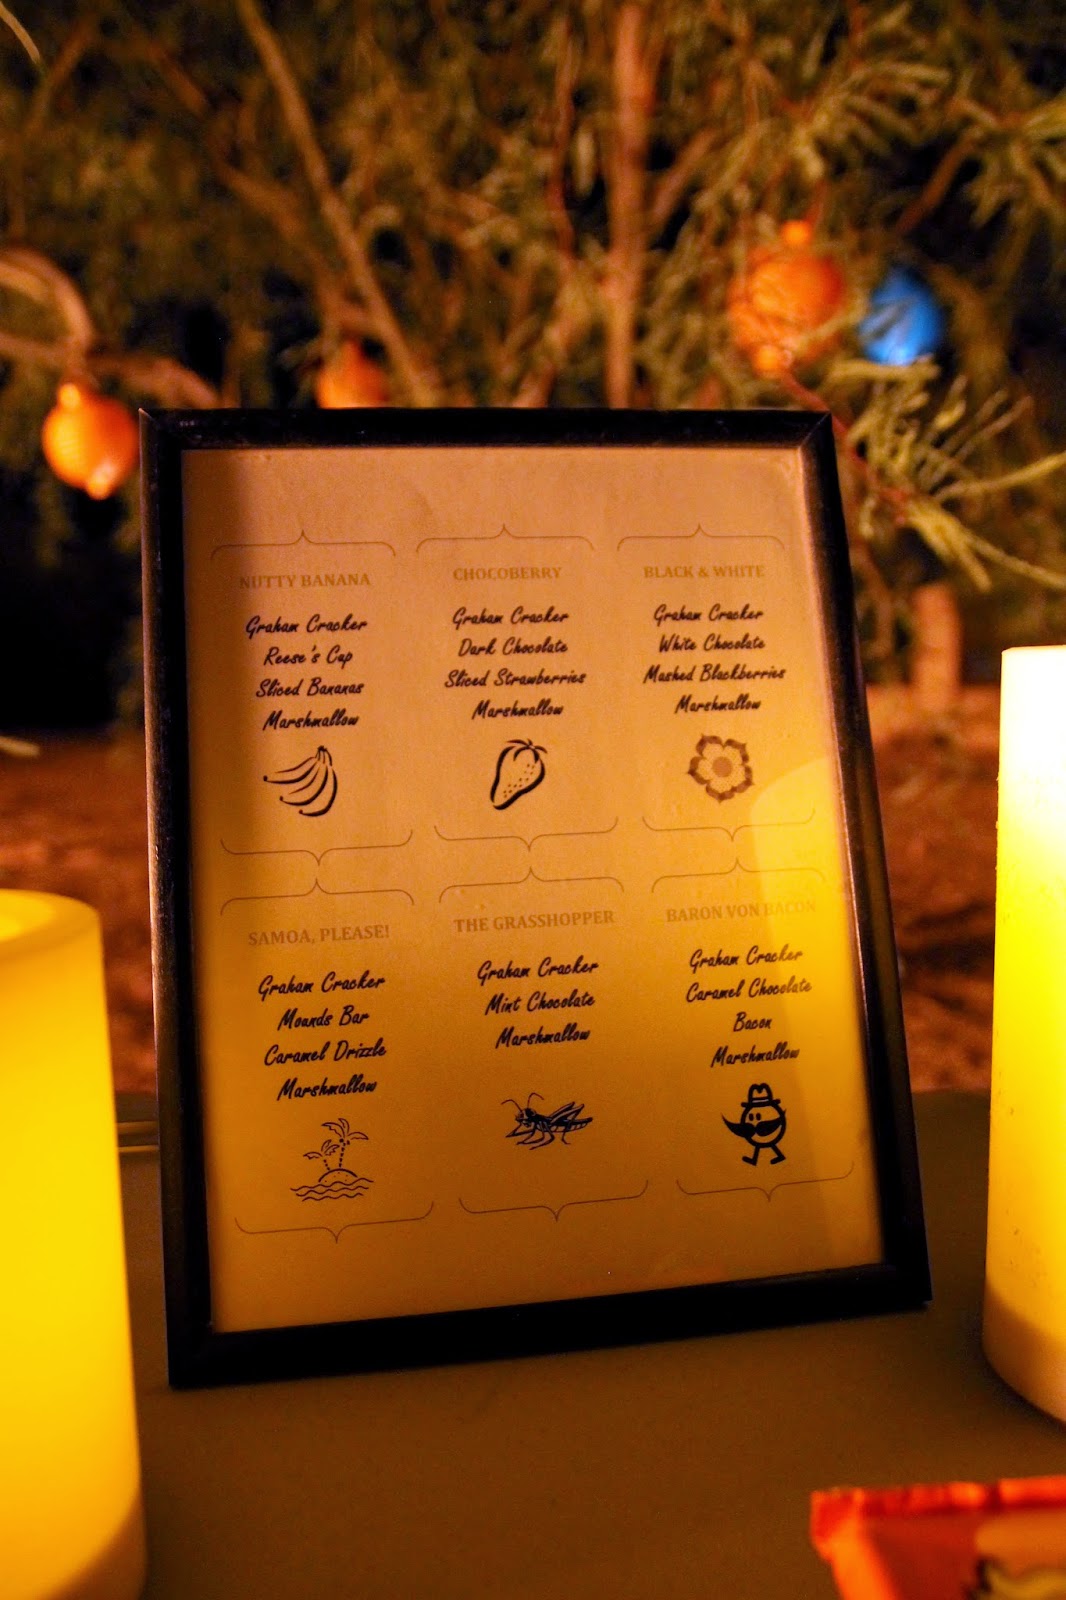 NUTTY BANANA
Graham Cracker
Reese's Cup
Sliced Bananas
Marshmallow
CHOCOBERRY
Graham Cracker
Dark Chocolate
Sliced Strawberries
Marshmallow
BLACK & WHITE
Graham Cracker
White Chocolate
Mashed Blackberries
Marshmallow
SAMOA, PLEASE!
Graham Cracker
Mounds Bar
Caramel Drizzle
Marshmallow
THE GRASSHOPPER
Graham Cracker
Mint Chocolate
Marshmallow
BARON VON BACON
Graham Cracker
Caramel Chocolate
Bacon
Marshmallow